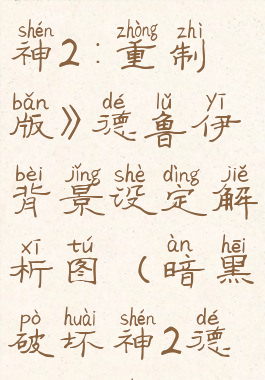 shén zhòng zhì
神2:重制
bǎn dé lǔ yī
版》德鲁伊
bèi jǐng shè dìng jiě
背景设定解
xī tú àn hēi
析图(暗黑
pò huài shén dé
破坏神2德